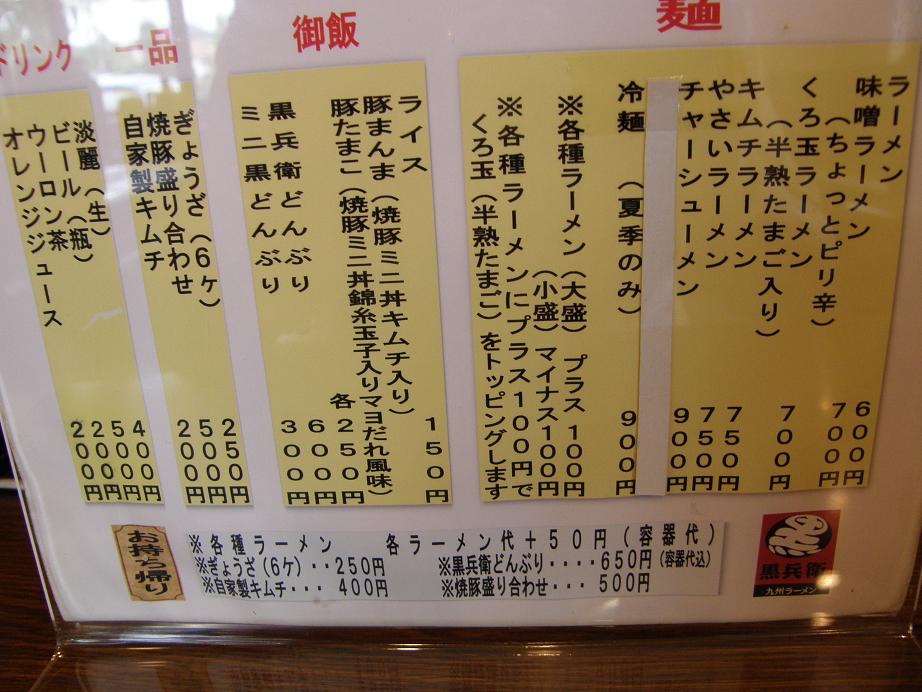 麺
ラーメン 600円
味噌ラーメン 700円
(ちょっとピリ辛)
くろ玉ラーメン 700円
(半熟たまご入り)
キムチラーメン 750円
やさいラーメン 750円
チャーシューメン 900円
冷麺(夏季のみ) 900円
※各種ラーメン(大盛)プラス100円
(小盛)マイナス100円
※各種ラーメンにプラス100円で
くろ玉(半熟たまご)をトッピングします
御飯
ライス 150円
豚まんま(焼豚ミニ丼キムチ入り)
豚たまこ(焼豚ミニ丼錦糸玉子入りマヨだれ風味)
各250円
黒兵衛どんぶり 600円
ミニ黒どんぶり 300円
一品
ぎょうざ(6ケ) 250円
焼豚盛り合わせ 500円
自家製キムチ 200円
ドリンク
淡麗(生) 400円
ビール(瓶) 500円
ウーロン茶 200円
オレンジジュース 200円
お持ち帰り
※各種ラーメン 各ラーメン代+50円(容器代)
※ぎょうざ(6ケ)・・250円 ※黒兵衛どんぶり・・・・650円(容器代込)
※自家製キムチ・・・400円 ※焼豚盛り合わせ・・・500円
黒兵衛
九州ラーメン